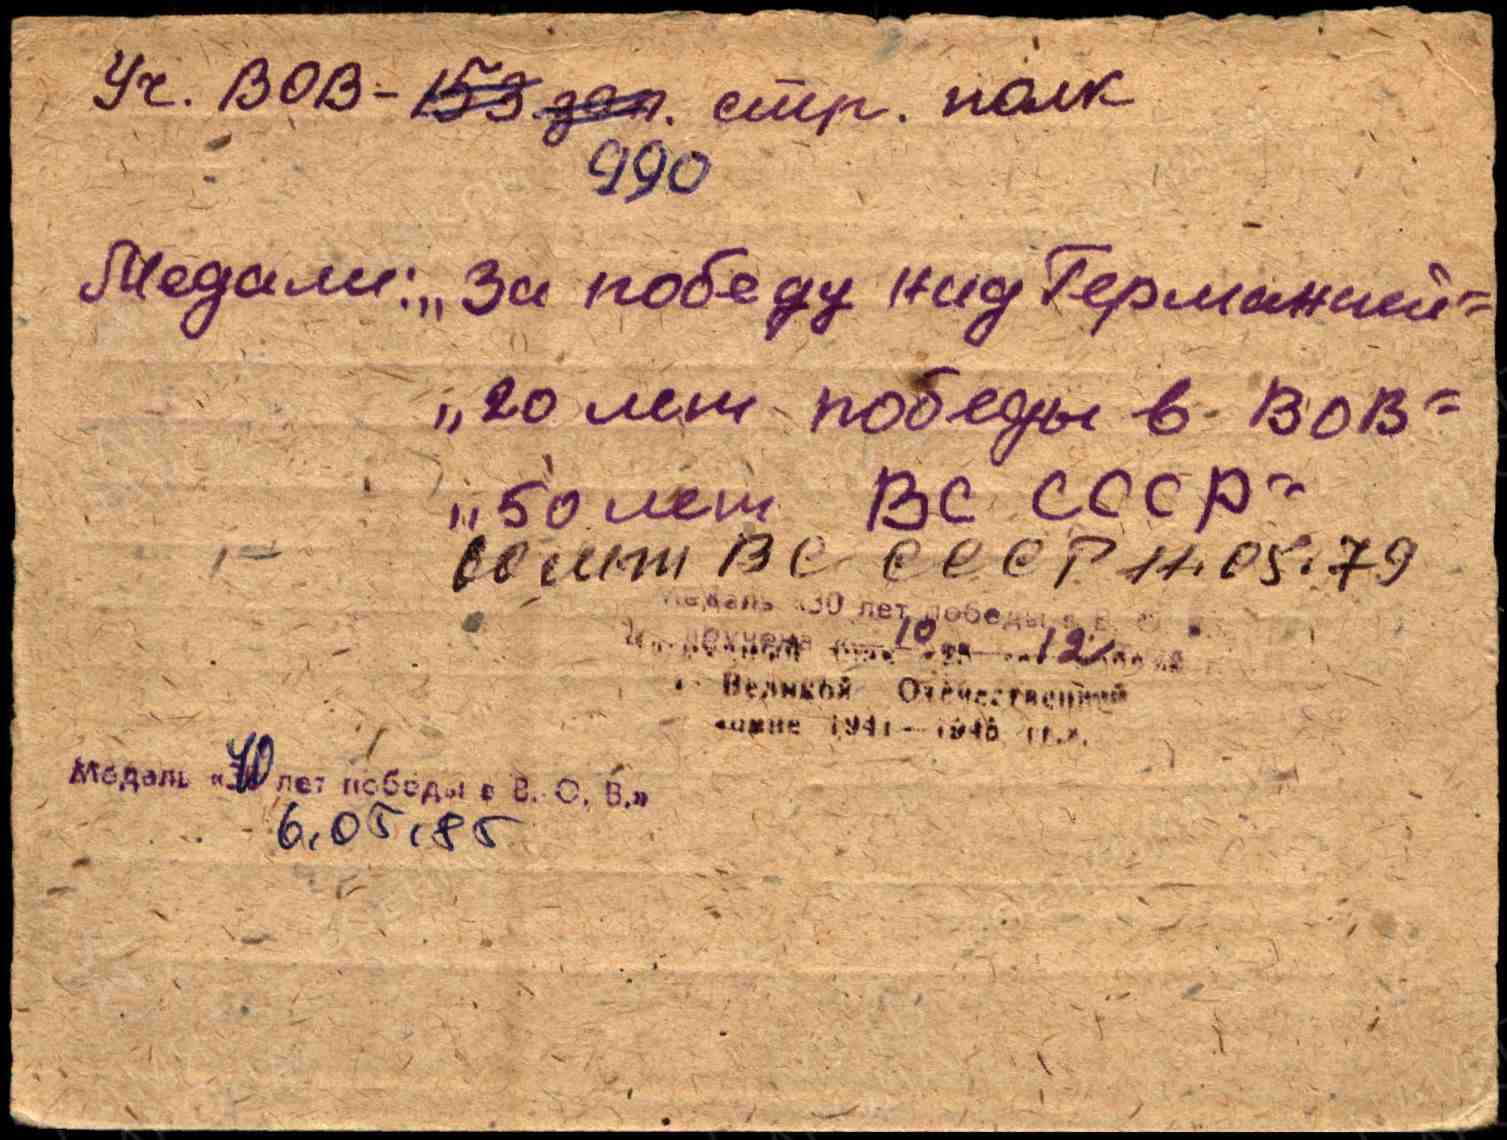 Уч. ВОВ - 153 зап. стр. полк
990
Медали: „За победу над Германией"
„20 лет победы в ВОВ"
„50 лет ВС СССР"
60 лет ВС СССР 11.05.79
Медаль «30 лет победы в В.
вручена 10 12
Великой Отечественной
войне 1941—1945 гг.».
Медаль «40 лет победы в В. О. В.»
6.05.85